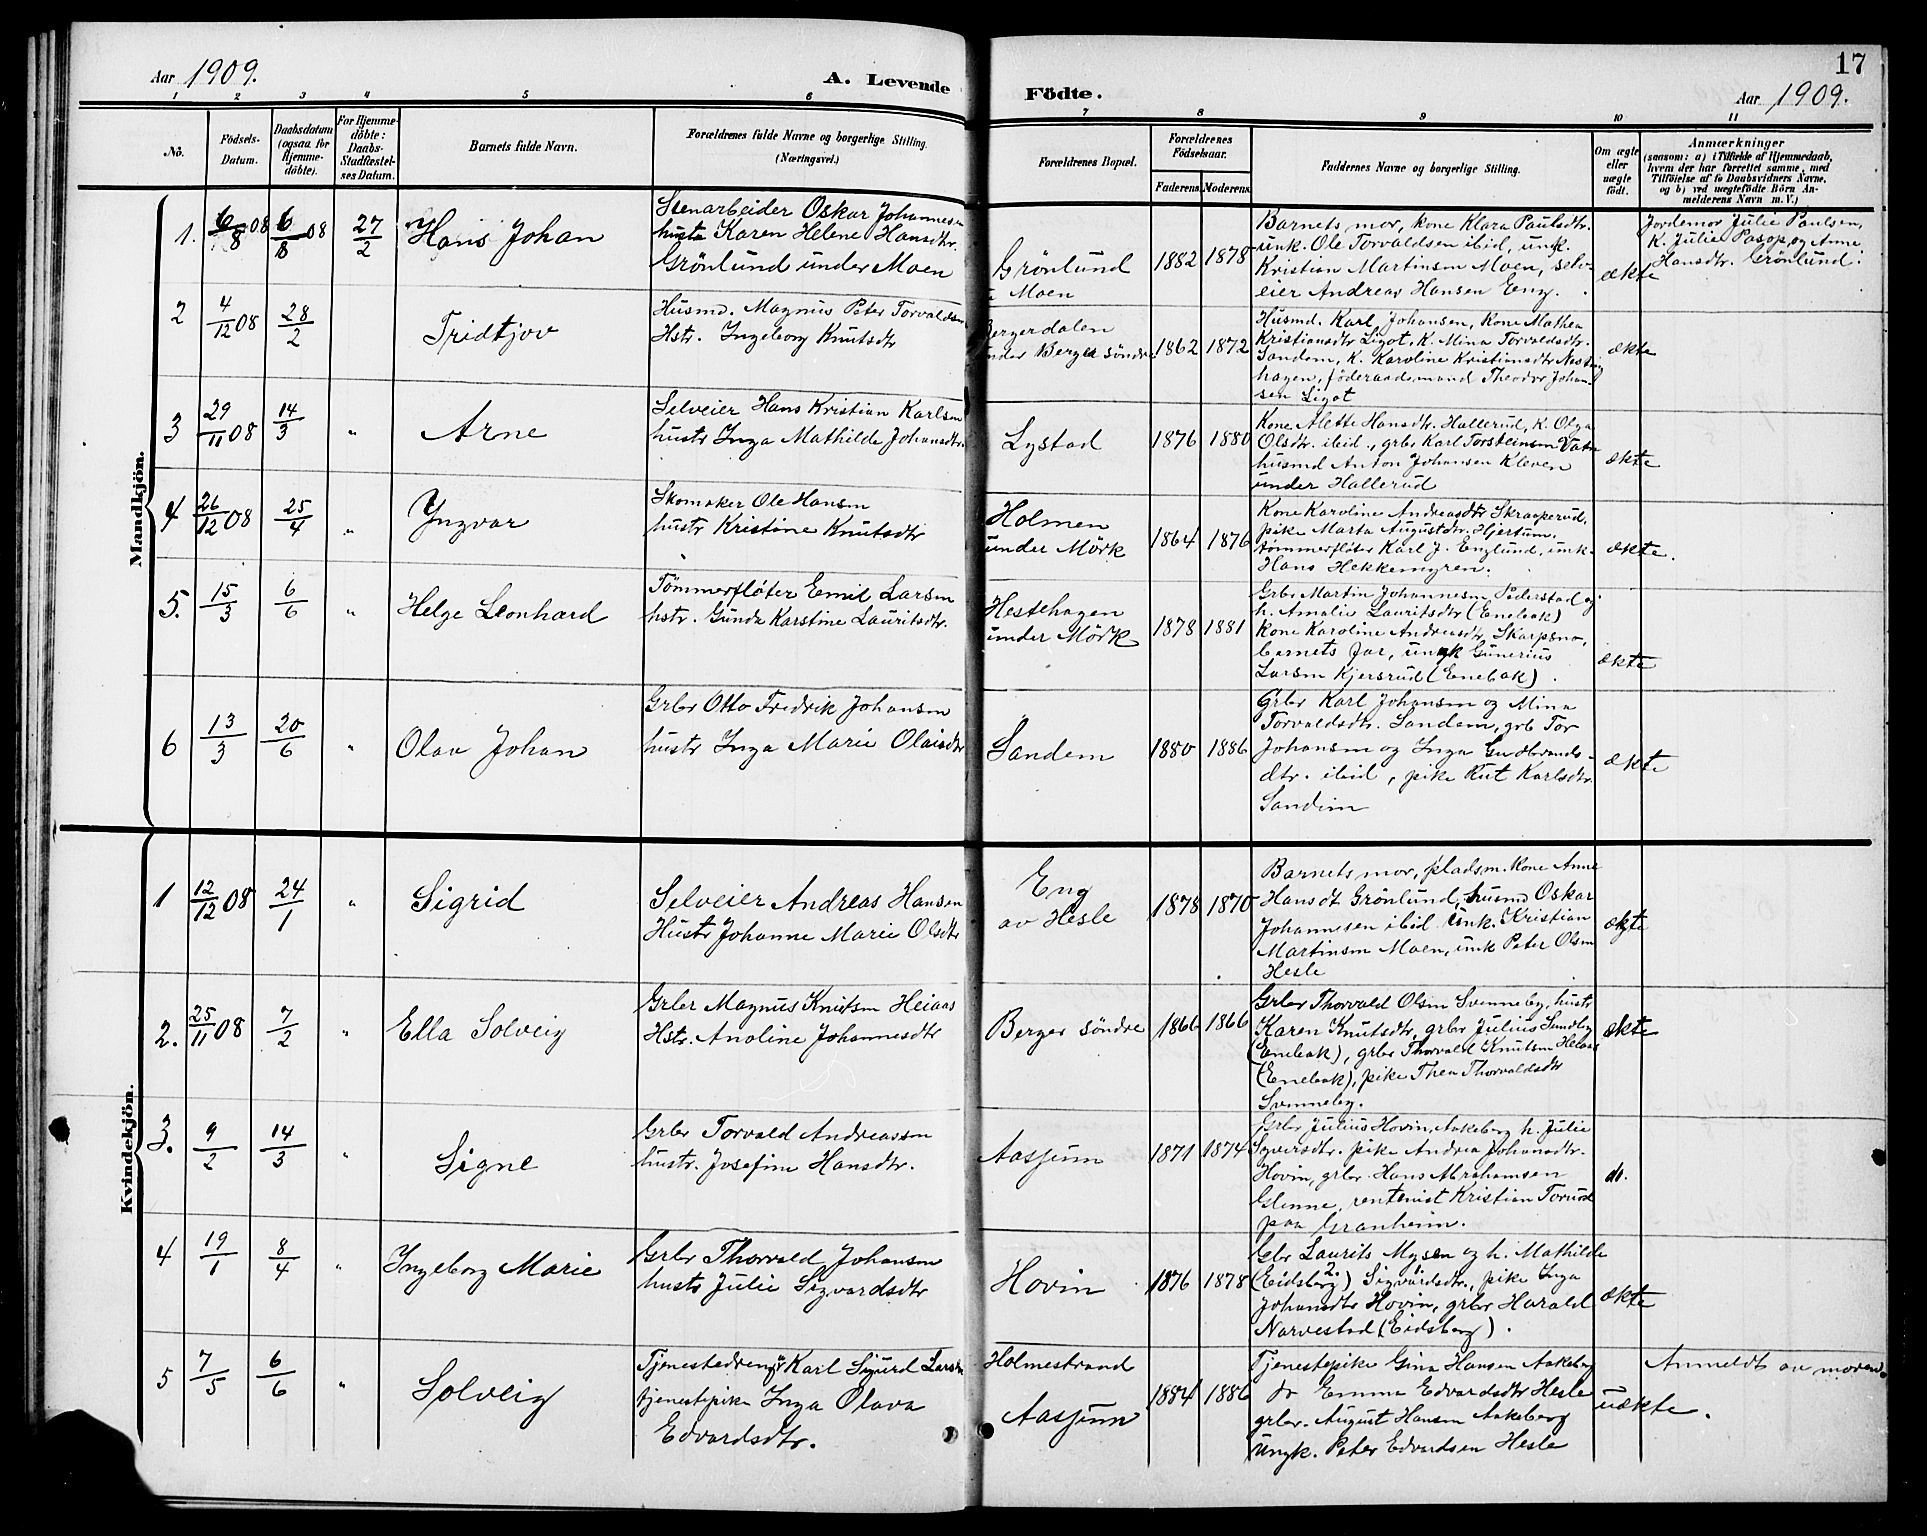 17
Aar 1909.
A. Levende Födte.
Aar 1909.
1 2 3 4 5 6 7 8 9 10 11
No.
Födsels-Datum.
Daabsdatum (ogsaa for Hjemme-döbte).
For Hjemme-döbte: Daabs-Stadfæstel-ses Datum.
Barnets fulde Navn.
Forældrenes fulde Navne og borgerlige Stilling. (Næringsvei.)
Forældrenes Bopæl.
Forældrenes Födselsaar.
Faderens. Moderens.
Faddernes Navne og borgerlige Stilling.
Om ægte eller uægte födt.
Anmærkninger
(saasom: a) i Tilfælde af Hjemmedaab, hvem der har forrettet samme, med Tilföielse af to Daabsvidners Navne, og b) ved uægtefödte Börn An-melderens Navn m. V.)
Mandkjön.
1. 6/8 08 6/8 08 27/2 Hans Johan
Stenarbeider Oskar Johannesen
hustr Karen Helene Hansdtr.
Grönlund under Moen
Grönlund
u Moen
1882 1878
Barnets mor, kone Klara Paulsdtr.
unk. Ole Torvaldsen ibid, unk.
Kristian Martinsen Moen, selv-
eier Andreas Hansen Eng.
ækte
Jordemor Julie Paulsen,
K. Julie Pasop, og Anne
Hansdtr. Grönlund.
2 4/12 08 28/2 Fridtjov
Husmd. Magnus Peter Torvaldsen
Hstr. Ingeborg Knutsdtr
Bergerdalen
under Berger söndre
1862 1872
Husmd. Karl Johansen, kone Mathea
Kristiansdtr Ligot, K. Mina Torvaldsdtr.
Sandem, K. Karoline Kristiansdtr
hagen, föderaadsmand Theodor Johan-
sen Ligot
ækte
3 29/11 08 14/3 " Arne
Selveier Hans Kristian Karlsen
hustr Inga Mathilde Johansdtr.
Lystad
1876 1880
Kone Alette Hansdtr. Hallerud, K. Olga
Olsdtr. ibid., grbr Karl Torsteinsen Vatn
husmd Anton Johansen Kleven
under Hallerud
ækte
4 26/12 08 25/4 " Yngvar
Skomaker Ole Hansen
hustr Kristine Knutsdtr
Holmen
under Mörk
1864 1876
Kone Karoline Andreasdtr Skraaperud,
pike Marta Augustdtr. Hjertum.
tømmerflöter Karl J. Englund, unk.
Hans Hekkemyren.
ækte.
5. 15/3 6/6 " Helge Leonhard
Tømmerflöter Emil Larsen
hstr. Gunda Karstine Lauritsdtr.
Hestehagen
under Mörk
1878 1881
Grbr Martin Johannesen Pederstad og
h. Amalie Lauritsdtr (Enebak)
Kone Karoline Andreasdtr Skarpsno,
barnets far, ungk Gunerius
Larsen Kjersrud (Enebak).
ækte
6 13/3 20/6 " Olav Johan
Grbr Otto Fredrik Johansen
hustr Inga Marie Olaisdtr
Sandem
1880 1886
Grbr Karl Johansen og Mina
Torvaldsdtr. Sandem, grb Tor
Johansen og Inga Gudbrands-
dtr. ibid, pike Rut Karlsdtr
Sandem
ækte
Kvindekjön.
1 12/12 08 24/1 " Sigrid
Selveier Andreas Hansen
Hustr Johanne Marie Olsdtr
Eng
av Hesle
1878 1870
Barnets mor, pladsm. Kone Anne
Hansdt Grönlund, husmd Oskar
Johannesen ibid unk. Kristian
Martinsen Moen, unk Peter Olsen
Hesle
ækte
2. 25/11 08 7/2 " Ella Solveig
Grbr Magnus Knutsen Heiaas
Hstr. Anoline Johannesdtr
Berger söndre
1866 1866
Grbr Thorvald Olsen Svenneby, hustr
Karen Knutsdtr, grbr Julius Sundby
(Enebak), grbr Thorvald Knutsen Heiaas
(Enebak), pike Thea Thorvaldsdtr
Svenneby.
ækte
3. 9/2 14/3 " Signe
Grbr Torvald Andreassen
hustr. Josefine Hansdtr.
Aasjum
1871 1874
Grbr Julius Hovin, Aakeberg h. Julie
Syversdtr. pike Andrea Johansdtr.
Hovin, grbr. Hans Abrahamsen
Glenne, rentenist Kristian Torud
paa Granheim.
do.
4 19/1 8/4 " Ingeborg Marie
Grbr Thorvald Johansen
hustr Julie Sigvardsdtr
Hovin
1876 1878
Gbr Laurits Mysen og h. Mathilde
(Eidsberg) 2. Sigvardsdtr. 1., pike Inga
Johansdtr Hovin, grbr Harald
Narvestad (Eidsberg).
ækte
5 7/5 6/6 " Solveig
Tjenestedreng Karl Sigurd Larsen
tjenestepike Inga Olava
Edvardsdtr.
Holmestrand
Aasjum
1884 1886
Tjenestepike Gina Hansen Aakeberg
do Emma Edvardsdtr Hesle
grbr. August Hansen Aakeberg
Ungk. Peter Edvardsen Hesle
uækte.
Anmeldt av moren.